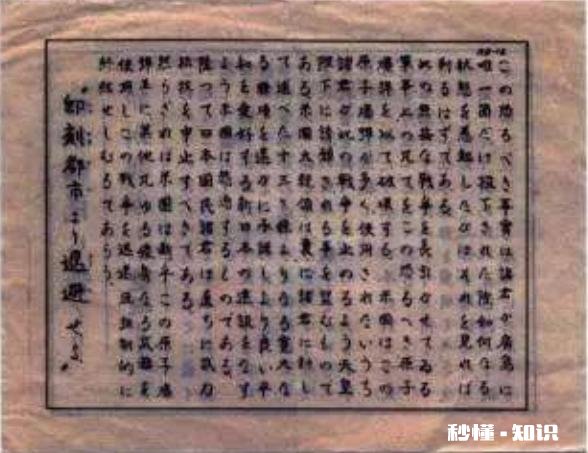 AB-12
この恐るべき事實は諸君が廣島に
唯一箇だけ投下された際如何なる
状態を惹起したかはそれを見れば
判るはずである。
此の無益な戦争を長引かせてゐる
軍事上の凡てをこの恐るべき原子
爆弾を以て破壊する。米國はこの
原子爆弾が多く使用されないうち
諸君が此の戦争を止めるよう天皇
陛下に請願される事を望むもので
ある米國大統領は曩に諸君に對し
て述べた十三ヶ條よりなる寛大な
る條項を速かに承諾しより良い平
和を愛好する新日本の建設をなす
よう米國は慫慂するものである。
従つて日本國民諸君は直ちに武力
抵抗を中止すべきである。
然らざれば米國は断乎この原子爆
弾並に其他凡ゆる優秀なる武器を
使用しこの戦争を迅速且強制的に
終結せしむるであらう。
"即刻都市より退避せよ"
秒懂·知识